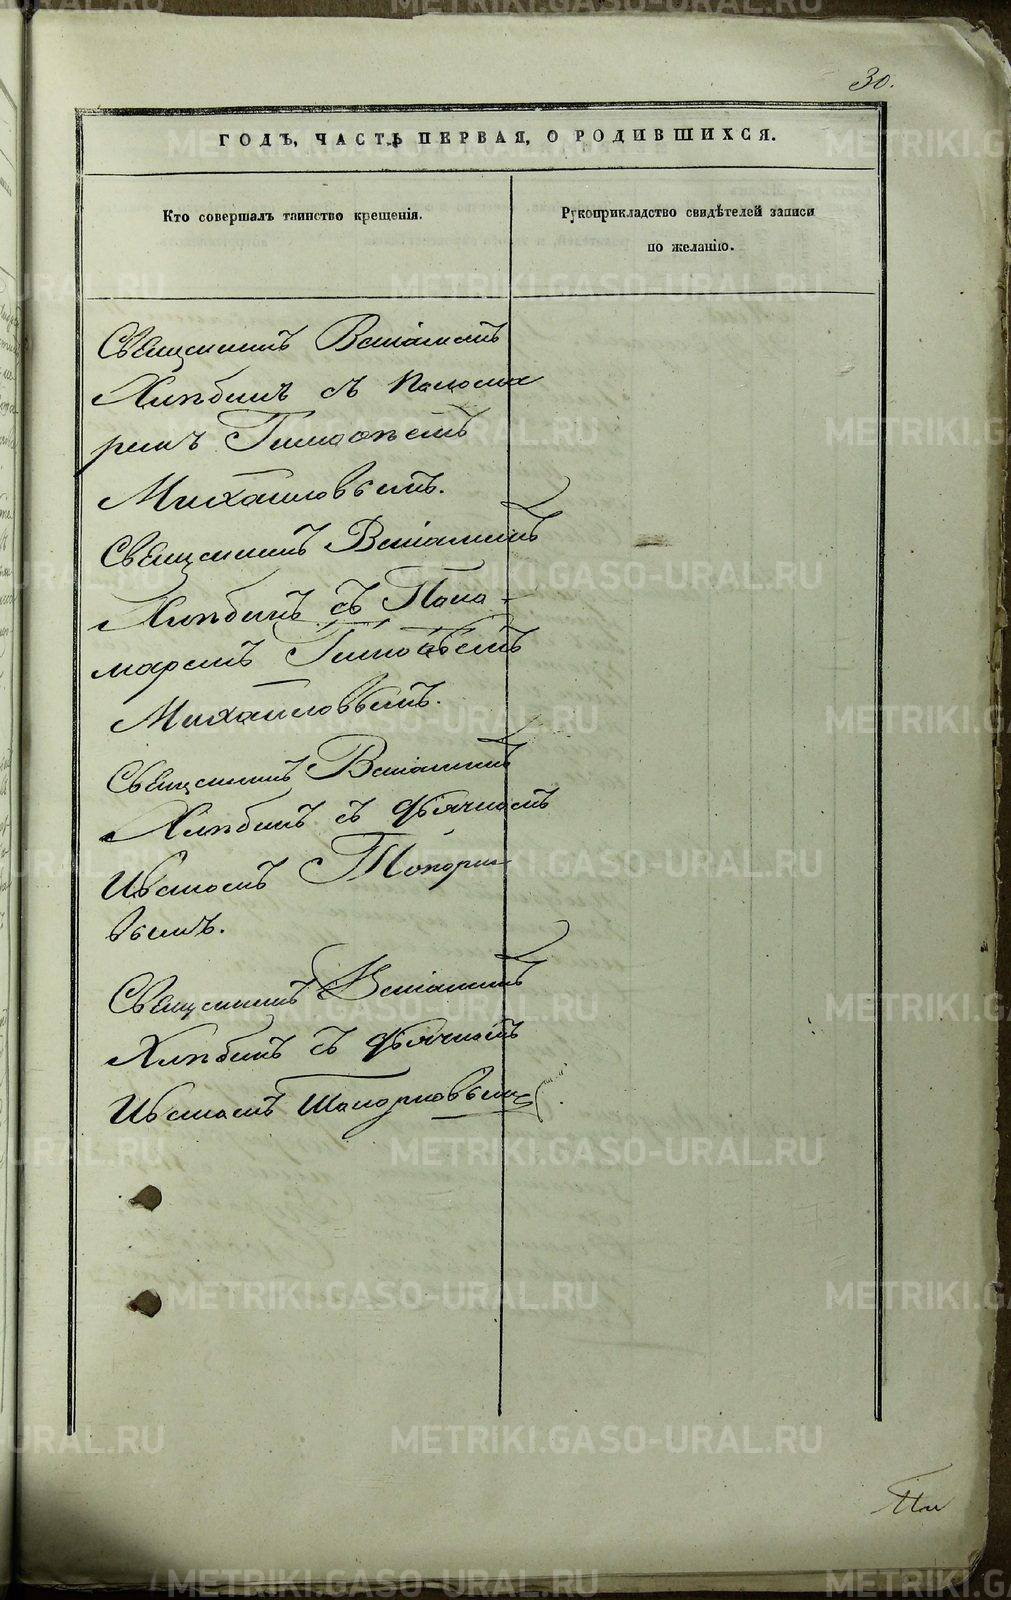 30.
ГОДЪ, ЧАСТЬ ПЕРВАЯ, О РОДИВШИХСЯ.
Кто совершалъ таинство крещенія.
Рукоприкладство свидѣтелей записи
по желанію.
Священникъ Веніаминъ
Хлѣбинъ съ Понома
ремъ Тимоѳеемъ
Михайловымъ.
Священникъ Веніаминъ
Хлѣбинъ съ Поно-
маремъ Тимоѳеемъ
Михайловымъ.
Священникъ Веніаминъ
Хлѣбинъ съ дьячкомъ
Иваномъ Топорко
вымъ.
Священникъ Веніаминъ
Хлѣбинъ съ дьячкомъ
Иваномъ Топорковымъ.
METRIKI.GASO-URAL.RU